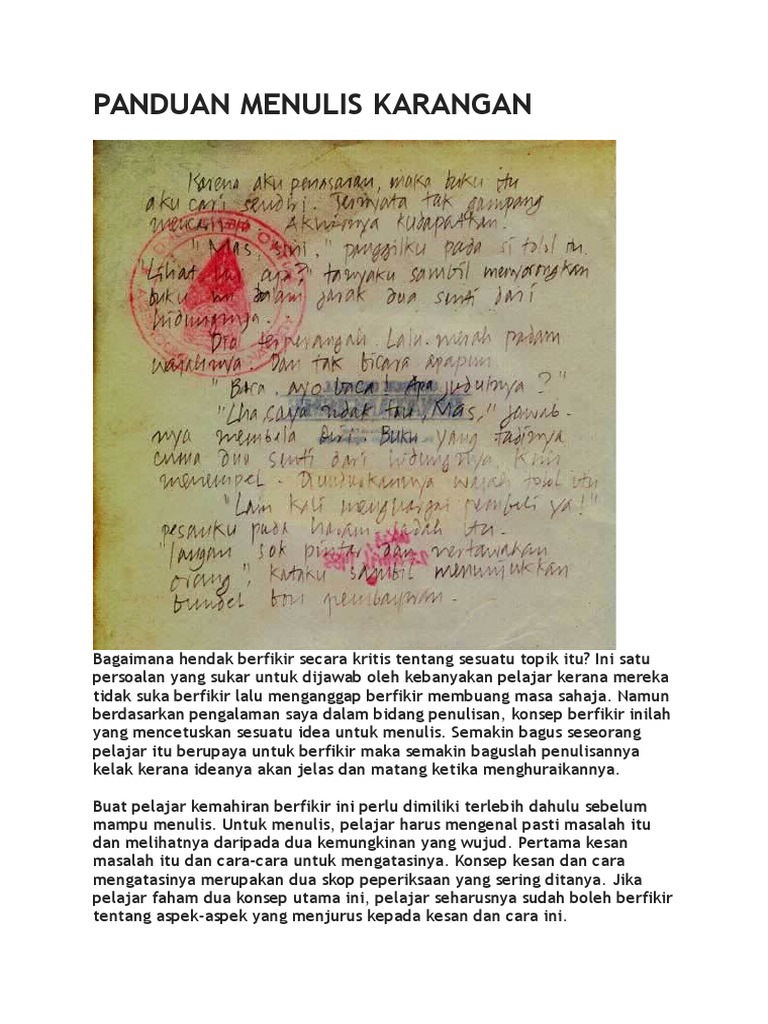 PANDUAN MENULIS KARANGAN
Karena aku penasaran, maka buku itu
aku cari sendiri. Ternyata tak gampang
mencarinya. Akhirnya kudapatkan.
"Mas, sini," panggilku pada si tolol itu.
"Lihat ini apa?" tanyaku sambil menyorongkan
buku itu dalam jarak dua senti dari
hidungnya.
Dia terperangah. Lalu merah padam
wajahnya. Dan tak bicara apapun.
"Baca, ayo baca! Apa judulnya?"
"Lha, saya tidak tau, Mas," jawab-
nya membela diri. Buku yang tadinya
cuma dua senti dari hidungnya, kini
menempel. Ditundukkannya wajah tolol itu
"Lain kali menghargai pembeli ya!"
pesanku pada
"Jangan sok pintar dan mertawakan
orang", kataku sambil menunjukkan
bundel bon pembayaran.
Bagaimana hendak berfikir secara kritis tentang sesuatu topik itu? Ini satu
persoalan yang sukar untuk dijawab oleh kebanyakan pelajar kerana mereka
tidak suka berfikir lalu menganggap berfikir membuang masa sahaja. Namun
berdasarkan pengalaman saya dalam bidang penulisan, konsep berfikir inilah
yang mencetuskan sesuatu idea untuk menulis. Semakin bagus seseorang
pelajar itu berupaya untuk berfikir maka semakin baguslah penulisannya
kelak kerana ideanya akan jelas dan matang ketika menghuraikannya.
Buat pelajar kemahiran berfikir ini perlu dimiliki terlebih dahulu sebelum
mampu menulis. Untuk menulis, pelajar harus mengenal pasti masalah itu
dan melihatnya daripada dua kemungkinan yang wujud. Pertama kesan
masalah itu dan cara-cara untuk mengatasinya. Konsep kesan dan cara
mengatasinya merupakan dua skop peperiksaan yang sering ditanya. Jika
pelajar faham dua konsep utama ini, pelajar seharusnya sudah boleh berfikir
tentang aspek-aspek yang menjurus kepada kesan dan cara ini.